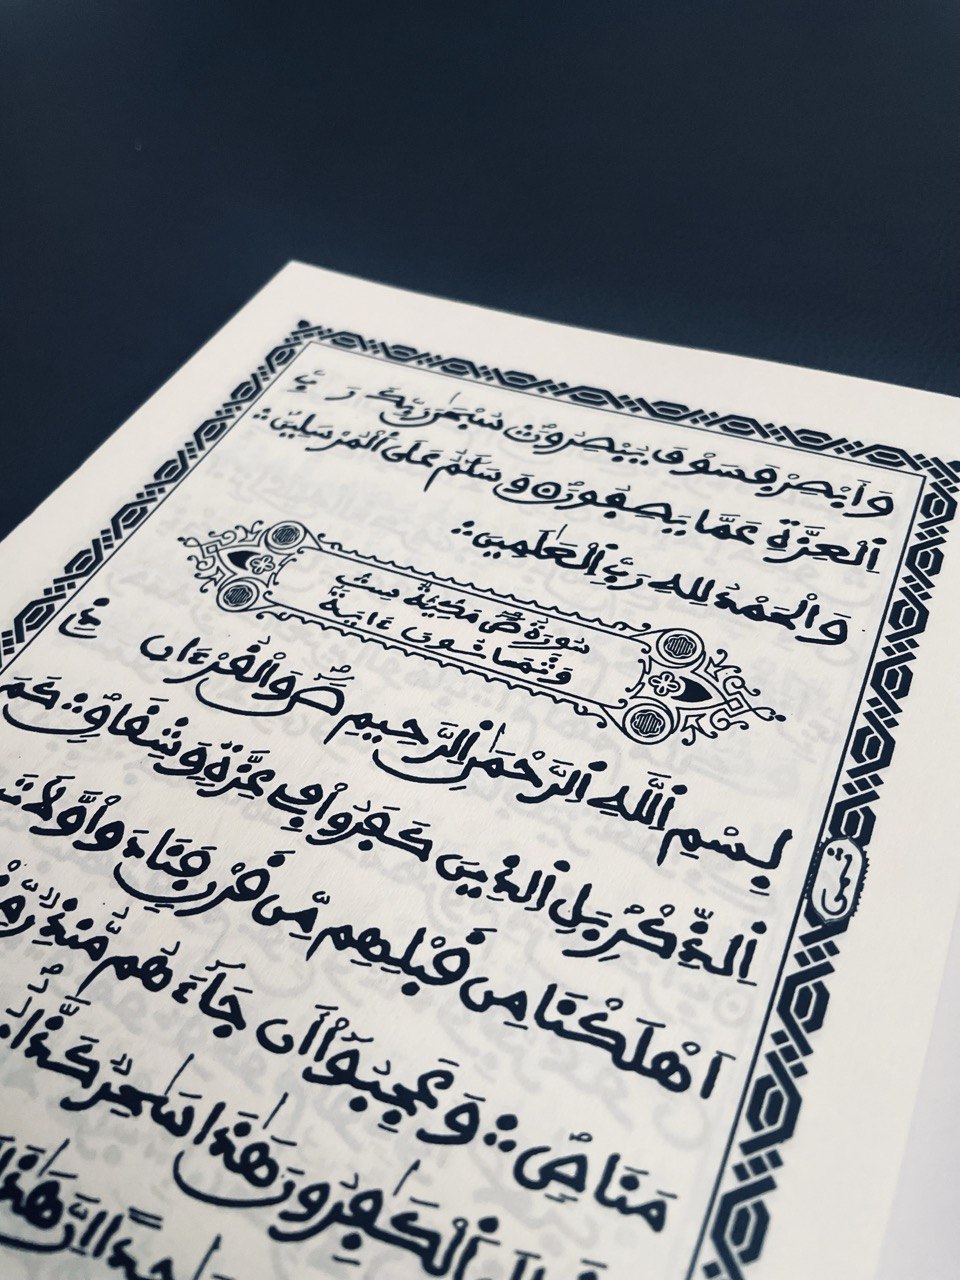 وَأَبْصِرْ فَسَوْفَ يُبْصِرُونَ سُبْحَٰنَ رَبِّكَ رَبِّ
اِلْعِزَّةِ عَمَّا يَصِفُونَ وَسَلَٰمٌ عَلَى اَلْمُرْسَلِينَ
وَالْحَمْدُ لِلهِ رَبِّ اِلْعَٰلَمِينَ
سُورَةُ صٓ مَكِّيَّةٌ سِتٌّ
وَثَمَانُونَ ءَايَةً
بِسْمِ اِللَّهِ اِلرَّحْمَٰنِ اِلرَّحِيمِ صٓ وَالْقُرْءَانِ ذِے
اِلذِّكْرِ بَلِ اِلذِينَ كَفَرُوا فِے عِزَّةٍ وَشِقَاقٍ كَمَ
ثمن
اَهْلَكْنَا مِن قَبْلِهِم مِّن قَرْنٍ فَنَادَوا وَّلَاتَ
مَنَاصٍ وَعَجِبُوا أَن جَاءَهُم مُّنذِرٌ
اَلْكَٰفِرُونَ هَٰذَا سَٰحِرٌ كَذَّابٌ
إِنَّ هَٰذَا